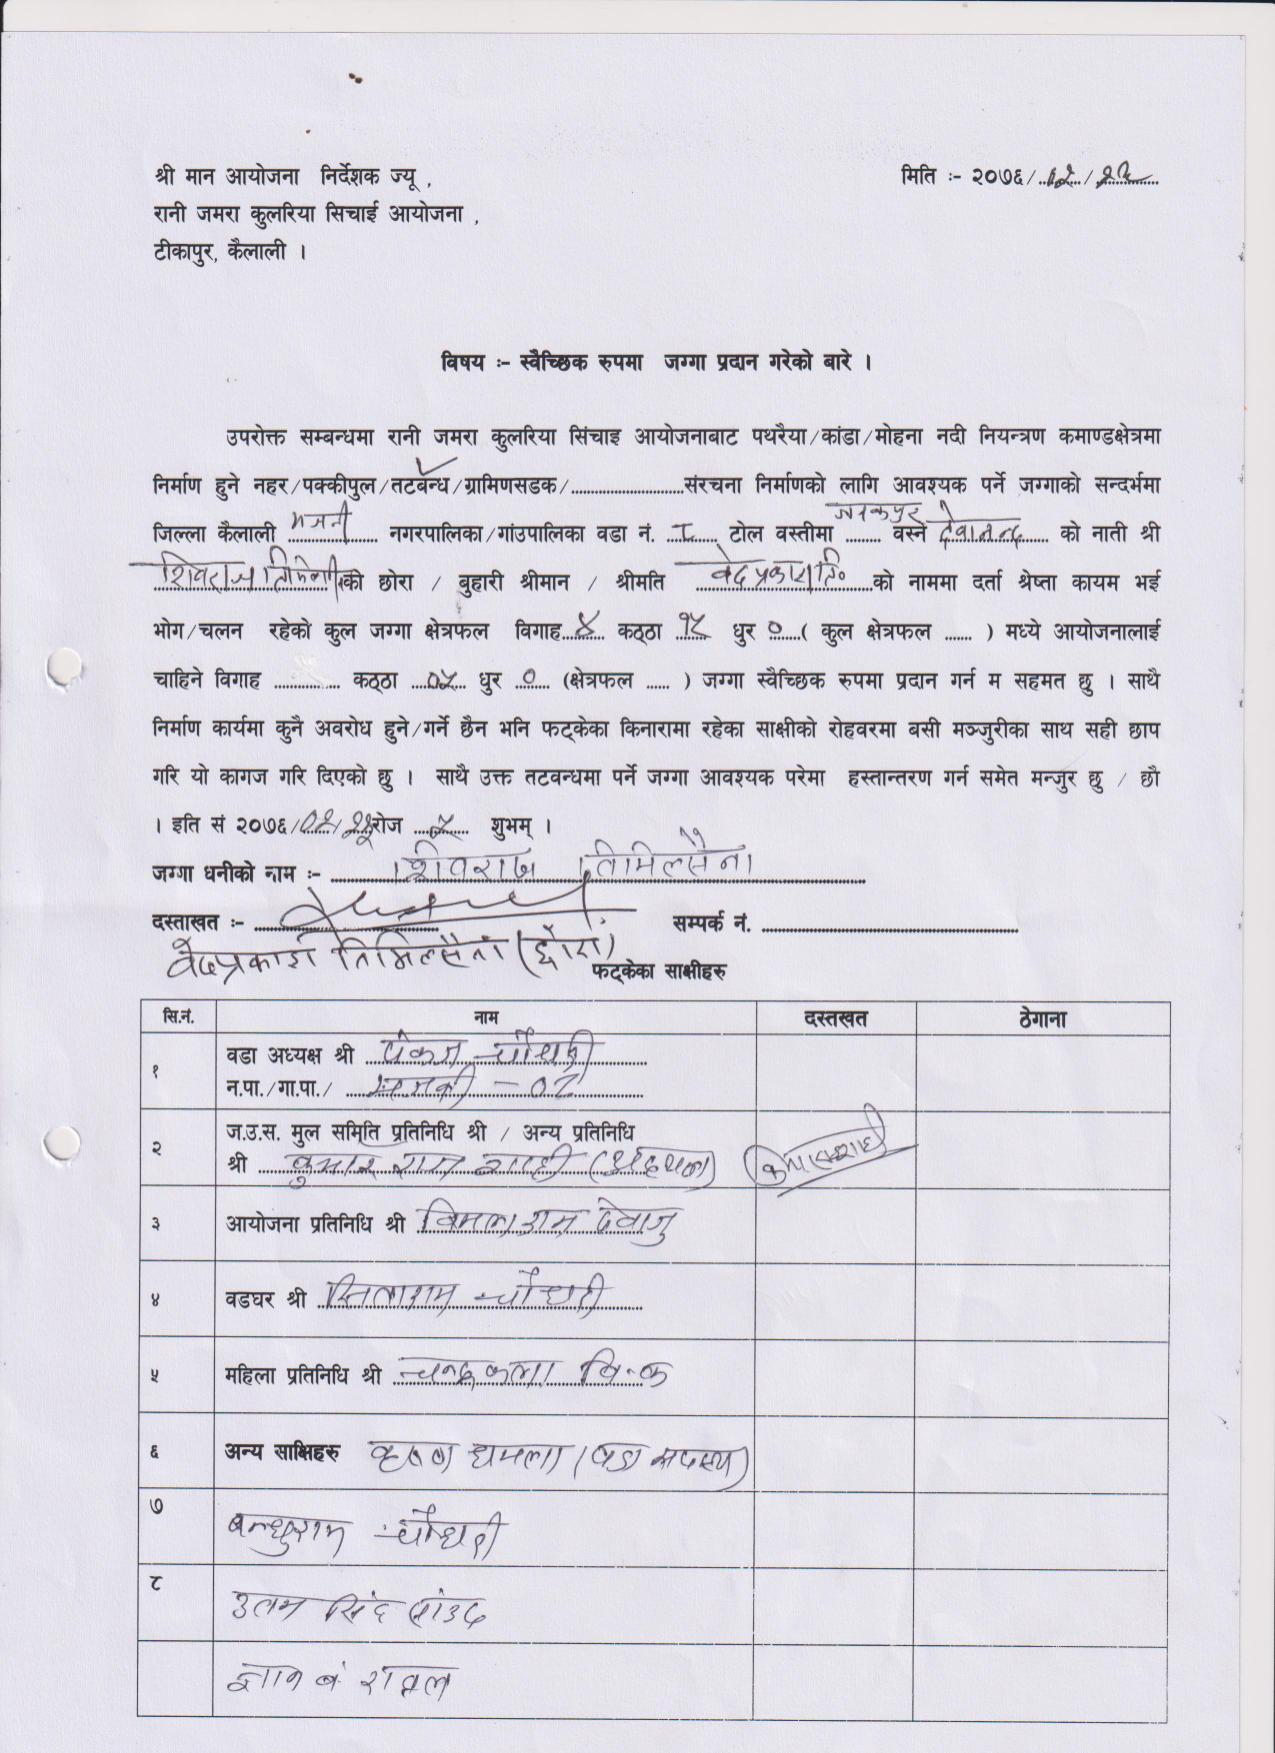 श्री मान आयोजना निर्देशक ज्यू ,
मिति :- २०७६/
रानी जमरा कुलरिया सिचाई आयोजना ,
टीकापुर, कैलाली ।
विषय :- स्वैच्छिक रुपमा जग्गा प्रदान गरेको बारे ।
उपरोक्त सम्बन्धमा रानी जमरा कुलरिया सिंचाइ आयोजनाबाट पथरैया/कांडा/मोहना नदी नियन्त्रण कमाण्डक्षेत्रमा
निर्माण हुने नहर/पक्कीपुल/तटबन्ध/ग्रामिणसडक/..............................संरचना निर्माणको लागि आवश्यक पर्ने जग्गाको सन्दर्भमा
जिल्ला कैलाली भजनी नगरपालिका/गांउपालिका वडा नं. ८ टोल वस्तीमा जनकपुर वस्ने देवानन्द को नाती श्री
शिवराज को छोरा / बुहारी श्रीमान / श्रीमति वेदप्रकाश ति० को नाममा दर्ता श्रेष्ता कायम भई
भोग/चलन रहेको कुल जग्गा क्षेत्रफल विगाह ४ कठ्ठा १५ धुर ० ( कुल क्षेत्रफल ...... ) मध्ये आयोजनालाई
चाहिने विगाह ............... कठ्ठा ०५ धुर ० (क्षेत्रफल ..... ) जग्गा स्वैच्छिक रुपमा प्रदान गर्न म सहमत छु । साथै
निर्माण कार्यमा कुनै अवरोध हुने/गर्ने छैन भनि फट्केका किनारामा रहेका साक्षीको रोहवरमा बसी मञ्जुरीका साथ सही छाप
गरि यो कागज गरि दिएको छु । साथै उक्त तटवन्धमा पर्ने जग्गा आवश्यक परेमा हस्तान्तरण गर्न समेत मन्जुर छु / छौ
। इति सं २०७६/ रोज शुभम् ।
जग्गा धनीको नाम :- शिवराज तिमिल्सैना
दस्ताखत :- सम्पर्क नं. ......................................
वेदप्रकाश तिमिल्सैना (छोरा)
फट्केका साक्षीहरु
सि.नं. नाम दस्तखत ठेगाना
१ वडा अध्यक्ष श्री पंकज चौधरी
न.पा./गा.पा./ भजनी - ०८
२ ज.उ.स. मुल समिति प्रतिनिधि श्री / अन्य प्रतिनिधि
श्री कुमार राज शाही (अध्यक्ष)
३ आयोजना प्रतिनिधि श्री विमलराम देवाजु
४ वडघर श्री सिताराम चौधरी
५ महिला प्रतिनिधि श्री चन्द्रकला वि.क
६ अन्य साक्षिहरु कृष्ण घमला (वडा सदस्य)
७ बन्धुराम चौधरी
८ उत्तम सिंह साउद
ज्ञान ब. रावल